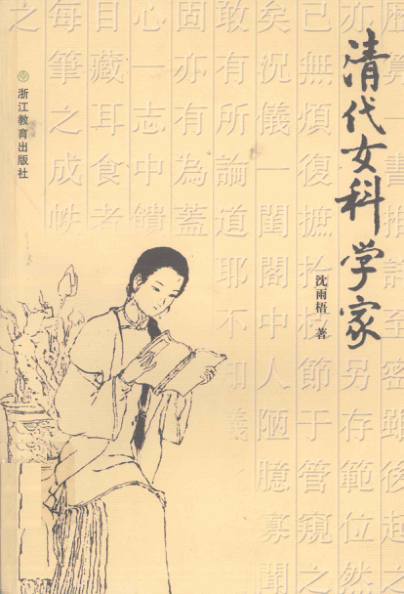 清代女科学家
沈雨梧 著
浙江教育出版社
亦
另存範位然
已無煩復摭拾枝節于管窺之
矣況儀一閨閣中人陋臆寡聞
敢有所論道耶不知義
固亦有為蓋
心一志中饋
目藏耳食者
每筆之成帙
之